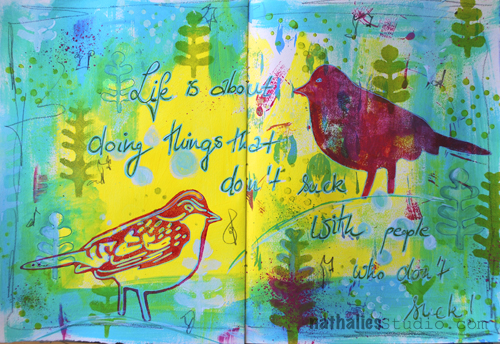 Life is about
doing things that
don't suck
with people
who don't
suck!
nathaliesstudio.com